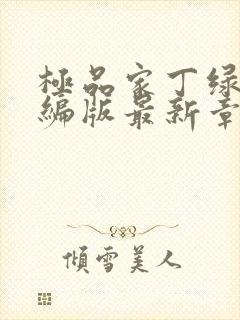 極品家丁绿
编版最新章
傾雪美人